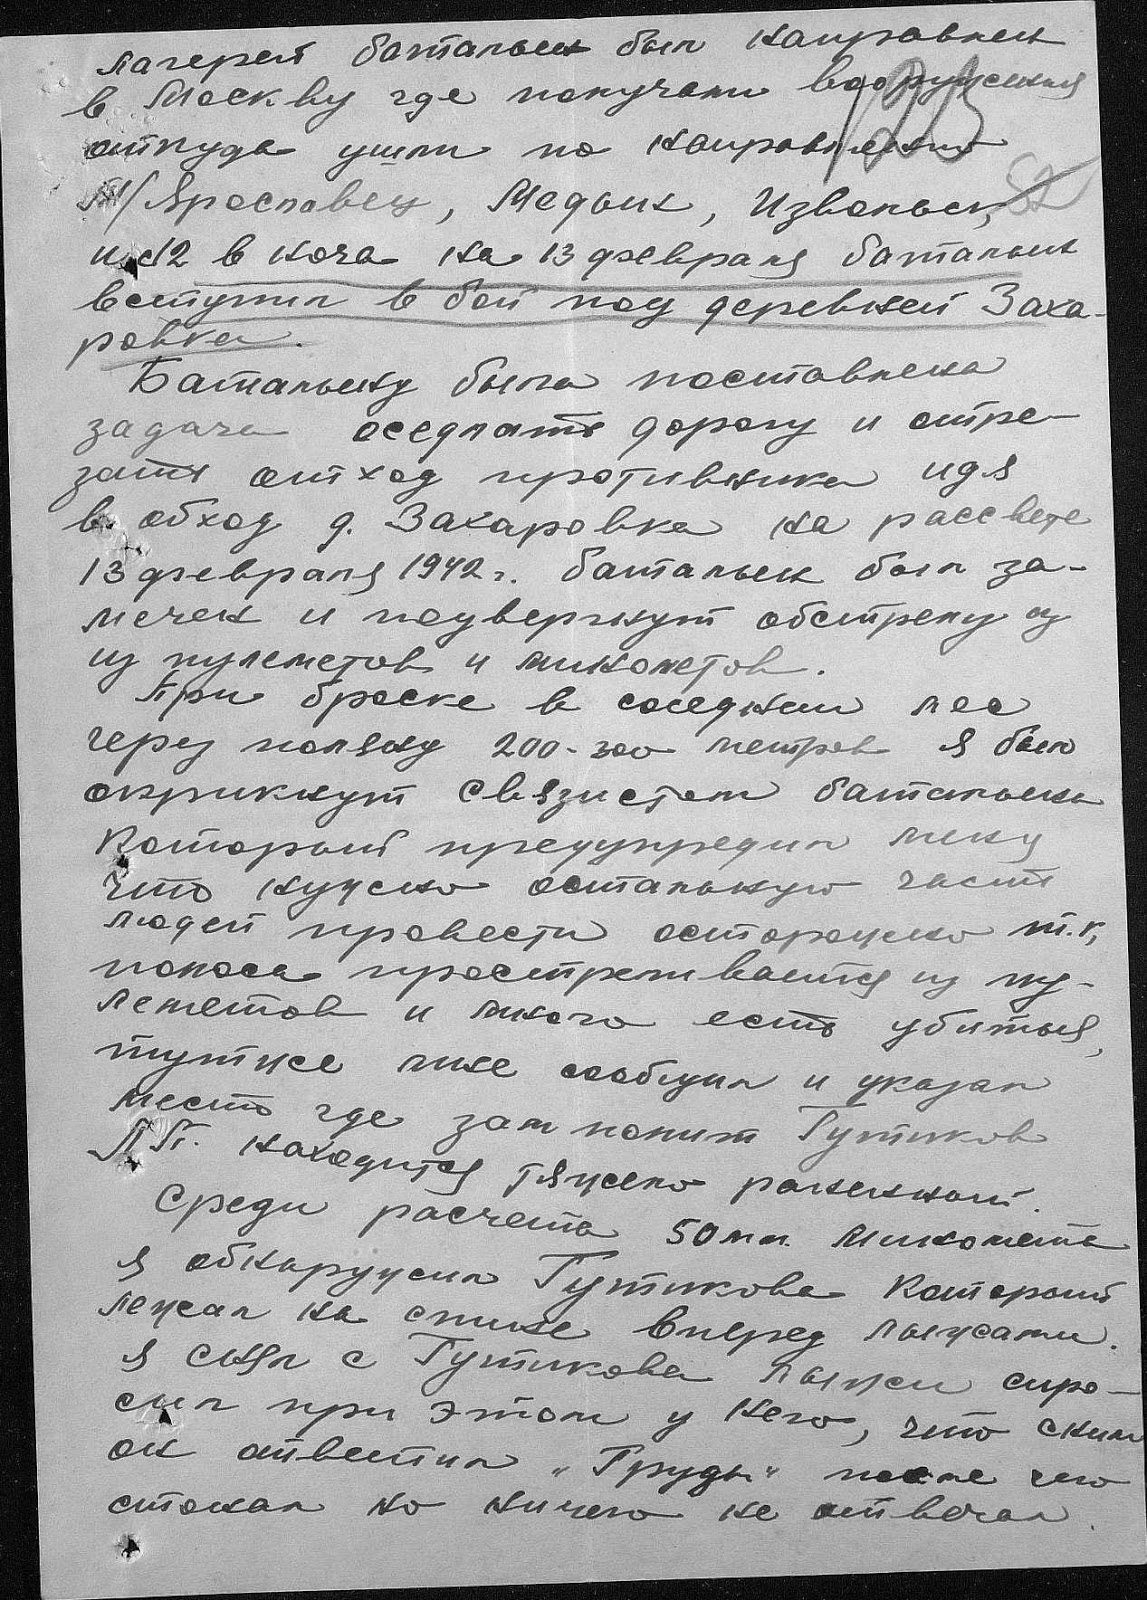 лагерей батальон был направлен
в Москву где получали вооружения
откуда ушли по направлению
М/Ярославец, Медынь, Извольск,
и с 12 в ноча на 13 февраля батальон
вступил в бой под деревней Заха-
ровка.
Батальону была поставлена
задача оседлать дорогу и отре-
зать отход противника идя
в обход д. Захаровка на рассвете
13 февраля 1942 г. батальон был за-
мечен и подвергнут обстрелу из
из пулеметов и минометов.
При броске в соседний лес
через поляну 200-300 метров я был
окрикнут связистом батальона
который предупредил меня
что нужно остальную часть
людей провести осторожно т.к,
полоса простреливается из пу-
леметов и много есть убитых,
тутже мне сообщил и указал
место где зам полит Гутиков
П.Г. находится тяжело раненный.
Среди расчета 50 мм. миномета
я обнаружил Гутикова который
лежал на спине вперед лыжами.
я снял с Гутикова лыжи спро-
сил при этом у него, что с ним
он ответил „Грудь" после чего
стонал но ничего не отвечал.